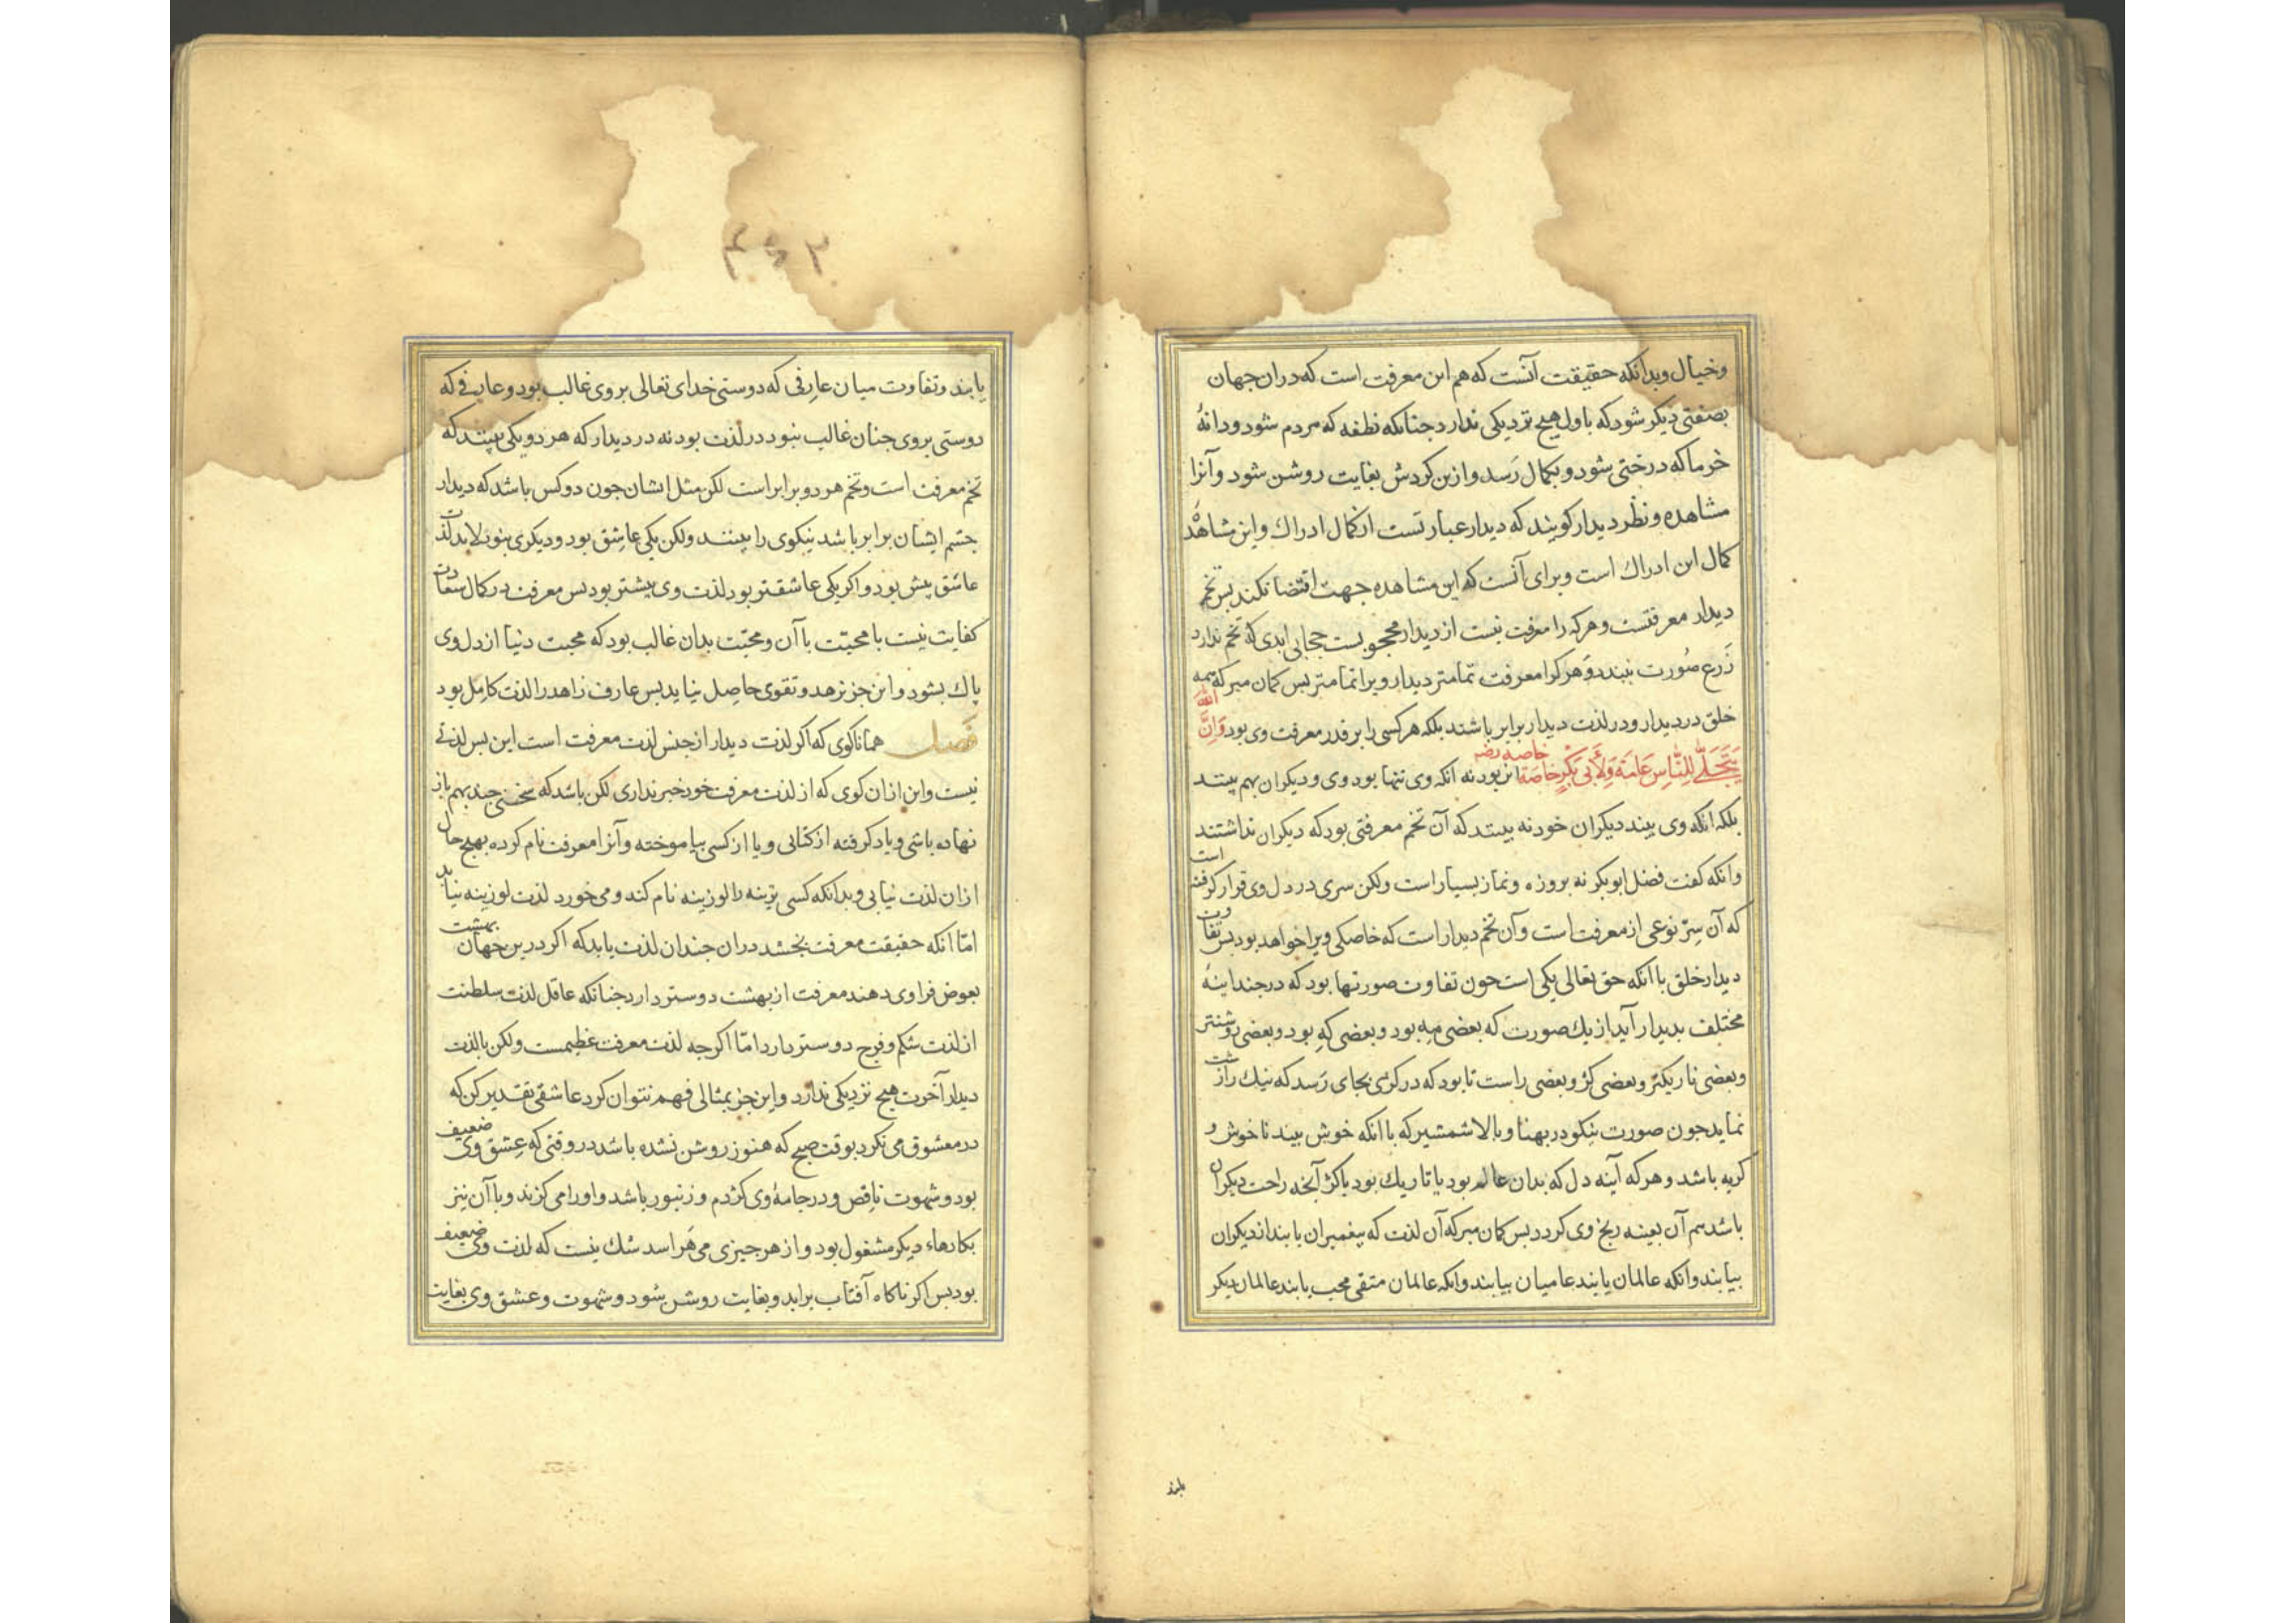 وخیال وبدانکه حقیقت آنست که هم این معرفت است که دران جهان
بصفتی دیکر شود که باول هیچ نزدیکی ندارد جنانکه نطفه که مردم شود ودانهٔ
خرما که درختی شود وبکمال رَسد وازین کردش بغایت روشن شود وآنرا
مشاهده ونظر دیدار کویند که دیدار عبارتست از کمال ادراك واین مشاهدهٔ
کمال این ادراك است وبرای آنست که این مشاهده جهت اقتضا نکند بس تخم
دیدار معرفتست وهرکه را معرفت نیست از دیدار محجوبست حجابی ابدی که تخم ندارد
زَرع صُورت نبندد وهرکرا معرفت تمامتر دیدار ویرا تمامتر بس کمان مبر که همه
خلق در دیدار ودر لذت دیدار برابر باشند بلکه هرکسی را بر قدر معرفت وی بود وَاِنَّ الله
یَتَجَلّٰی لِلنّٰاسِ عَامَة وَلِأَبی بَکْرٍ خاصَة خاصه رضه این بود نه انکه وی تنها بود وی ودیکران بهم بینند
بلکه انکه وی بیند دیکران خود نه بینند که آن تخم معرفتی بود که دیکران نداشتند
وانکه کفت فضل ابوبکر نه بروزه ونماز بسیار است ولکن سری در دل وی قرار کرفته است
که آن سِرّ نوعی از معرفت است وآن تخم دیدار است که خاصکی ویرا خواهد بود بس تفاوت
دیدار خلق با انکه حق تعالی یکی است جون تفاوت صورتها بود که در جند اینهٔ
مختلف بدیدار آید از یك صورت که بعضی مِه بود وبعضی کِه بود وبعضی روشنتر
وبعضی تاریکتر وبعضی کژ وبعضی راست تا بود که در کژی بجای رَسد که نیك را زشت
نماید جون صورت نیکو در بهنا وبالا شمشیر که با انکه خوش بیند ناخوش و
کریه باشد وهرکه آینه دل که بدان عالم بود یا تاریك بود یا کژ آنجه راحت دیکران
باشد هم آن بعینه رنج وی کردد بس کمان مبر که آن لذت که پیغمبران یابند از دیکران
بیابند وانکه عالمان یابند عامیان بیابند وانکه عالمان متقی محب یابند عالمان دیکر
یابند وتفاوت میان عارفی که دوستی خدای تعالی بر وی غالب بود وعارفی که
دوستی بر وی جنان غالب نبود در لذت بود نه در دیدار که هر دو یکی بینند که
تخم معرفت است وتخم هر دو برابر است لکن مثل ایشان جون دو کس باشد که دیدار
جشم ایشان برابر باشد نیکوی را بینند ولکن یکی عاشق بود ودیکری نبود لابد لذت
عاشق بیش بود واکر یکی عاشقتر بود لذت وی بیشتر بود بس معرفت در کمال سعادت
کفایت نیست با محبّت با آن ومحبّت بدان غالب بود که محبت دنیا از دل وی
پاك بشود واین جز بزهد وتقوی حاصِل نیاید بس عارف زاهد را لذت کامِل بود
فَصل همانا کوی که اکر لذت دیدار از جنس لذت معرفت است این بس لذتی
نیست واین ازان کوی که از لذت معرفت خود خبر نداری لکن باشد که سخنی جند بهم باز
نهاده باشی ویاد کرفته از کتابی ویا از کسی بیاموخته وآنرا معرفت نام کرده بهیج حال
ازان لذت نیابی وبدانکه کسی ترینه را لوزینه نام کند ومی خورد لذت لوزینه نیابد
امّا انکه حقیقت معرفت بجشد دران جندان لذت یابد که اکر درین جهان بهشت
بعوض فرا وی دهند معرفت از بهشت دوستر دارد جنانکه عاقل لذت سلطنت
از لذت شکم وفرج دوستر دارد امّا اکرجه لذت معرفت عظیمست ولکن با لذت
دیدار آخرت هیچ نزدیکی ندارد واین جز بمثالی فهم نتوان کرد عاشقی تقدیر کن که
در معشوق می نکرد بوقت صبح که هنوز روشن نشده باشد در وقتی که عِشق وی ضعیف
بود وشهوت ناقِص ودر جامهٔ وی کژدم وزنبور باشد واورا می کزند وبا آن نیز
بکارهاء دیکر مشغول بود واز هر جیزی می هَراسد شك نیست که لذت وی ضعیف
بود بس اکر ناکاه آفتاب براید وبغایت روشن شود وشهوت وعشق وی بغایت